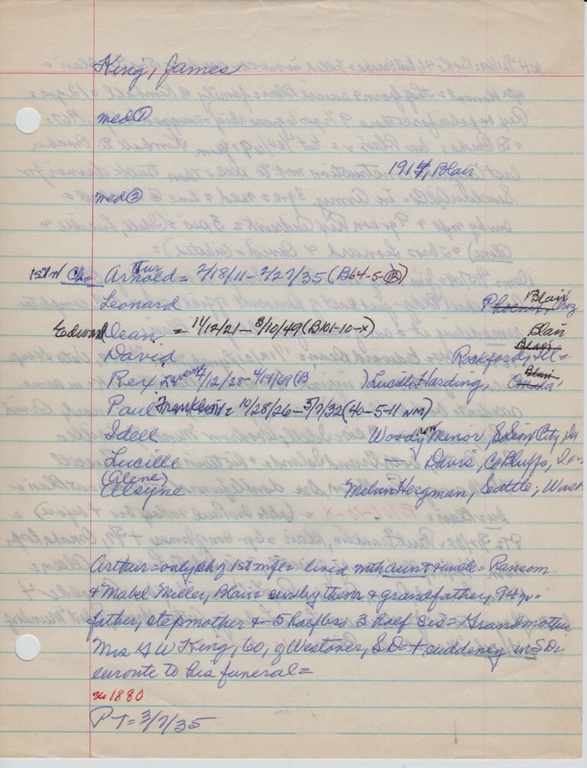 King, James
med ①
1914, Blair
med ②
1st m Arnold = 2/18/11 - 2/27/35 (B64-5-
Leonard Phoenix, Blair
Edward Dean = 11/12/21 - 3/10/49 (B101-10-x) Blair
David Rockford, Ill = Blair
Rex 4/12/28 - 4/19/69 (B ) Lucille Harding, Omaha Blair
Paul Franklin = 10/28/26 - 3/7/32 (40-5-11 nm)
Idell Woodrow Minor, S Sioux City, Ia
Lucille — Davis, Co Bluffs, Ia
(Alene)
Alayne Melvin Hergman, Seattle, Wash
Arthur = only ch of 1st mge = lived with aunt & uncle = Ransom
& Mabel Miller, Blair = surv by them & grandfather,
father, stepmother & 5 half bros 3 half sis = Grandmother
Mrs H W King, 60, of Westover, S.D. = † suddenly in S D
enroute to his funeral =
no 1880
P T = 3/7/35